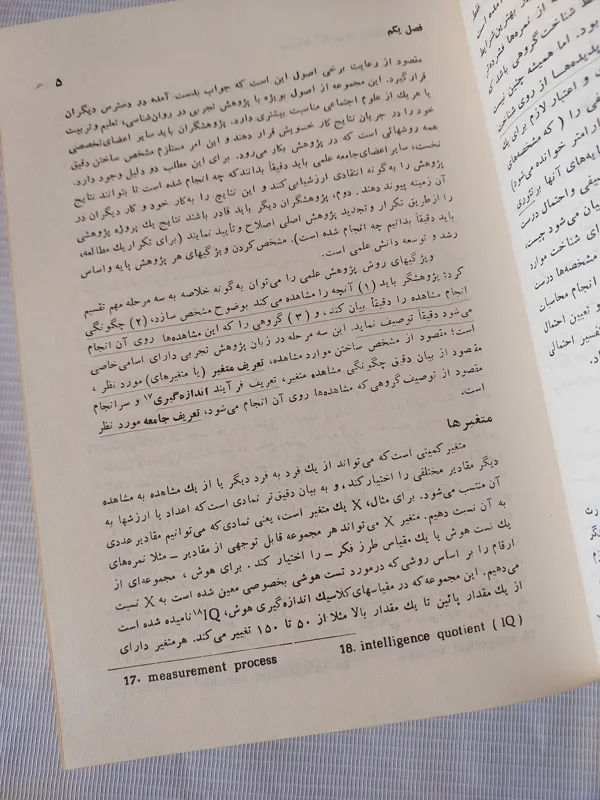 فصل یکم
۵
مقصود از رعایت برخی اصول این است که جواب بدست آمده در دسترس دیگران
قرار گیرد. این مجموعه از اصول بویژه با پژوهش تجربی در روان‌شناسی، تعلیم و تربیت
یا هریك از علوم اجتماعی مناسبت بیشتری دارد. پژوهشگران باید سایر اعضای تخصصی
خود را در جریان نتایج کار خسویش قرار دهند و این امر مستلزم مشخص ساختن دقیق
همه روشهائی است که در پژوهش بکار می‌رود. برای این مطلب دو دلیل وجود دارد.
نخست، سایر اعضای جامعه علمی باید دقیقاً بدانند که چه انجام شده است تا بتوانند نتایج
پژوهش را به‌گونه انتقادی ارزشیابی کنند و این نتایج را به‌کار خود و کار دیگران در
آن زمینه پیوند دهند. دوم، پژوهشگران دیگر باید قادر باشند نتایج یك پروژه پژوهشی
را از طریق تکرار و تجدید پژوهش اصلی اصلاح و تأیید نمایند (برای تکرار یك مطالعه،
باید دقیقاً بدانیم چه انجام شده است). مشخص کردن ویژگیهای هر پژوهش پایه و اساس
رشد و توسعه دانش علمی است.
ویژگیهای روش پژوهش علمی را می‌توان به‌گونه خلاصه به سه مرحله مهم تقسیم
کرد: پژوهشگر باید (۱) آنچه را مشاهده می‌کند بوضوح مشخص سازد، (۲) چگونگی
انجام مشاهده را دقیقاً بیان کند، و (۳) گروهی را که این مشاهده‌ها روی آن انجام
می‌شود دقیقاً توصیف نماید. این سه مرحله در زبان پژوهش تجربی دارای اسامی خاصی
است؛ مقصود از مشخص ساختن موارد مشاهده، تعریف متغیر (یا متغیرهای) مورد نظر ،
مقصود از بیان دقیق چگونگی مشاهده متغیر، تعریف فرآیند اندازه‌گیری۱۷ و سرانجام
مقصود از توصیف گروهی که مشاهده‌ها روی آن انجام می‌شود، تعریف جامعه مورد نظر
است.
متغیرها
متغیر کمیتی است که می‌تواند از یك فرد به فرد دیگر یا از یك مشاهده به مشاهده
دیگر مقادیر مختلفی را اختیار کند، و به بیان دقیق‌تر نمادی است که اعداد یا ارزشها به
آن منتسب می‌شود. برای مثال، X یك متغیر است، یعنی نمادی که می‌توانیم مقادیر عددی
به آن نسبت دهیم. متغیر X می‌تواند هر مجموعه قابل توجهی از مقادیر ــ مثلا نمره‌های
یك تست هوش یا یك مقیاس طرز فکر ــ را اختیار کند . برای هوش ، مجموعه‌ای از
ارقام را بر اساس روشی که درمورد تست هوشی بخصوصی معین شده است به X نسبت
می‌دهیم. این مجموعه که در مقیاسهای کلاسیك اندازه‌گیری هوش، IQ۱۸ نامیده شده است
از یك مقدار پائین تا یك مقدار بالا مثلا از ۵۰ تا ۱۵۰ تغییر می‌کند. هر متغیر دارای
17. measurement process
18. intelligence quotient ( IQ )